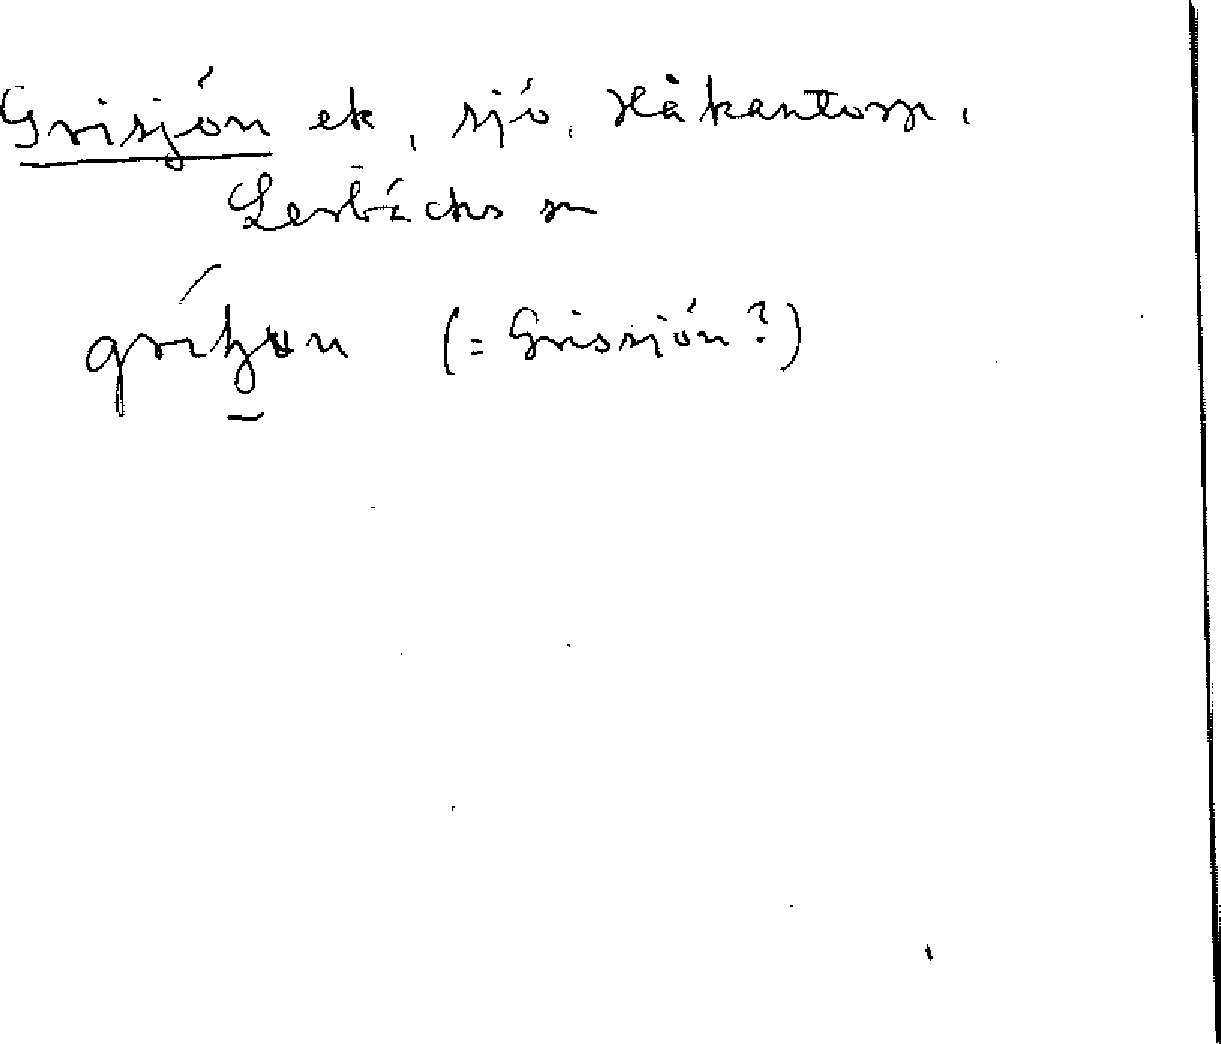 Grisjön ek, sjö, Håkantorp,
Lerbäcks sn
(= Grissjön?)